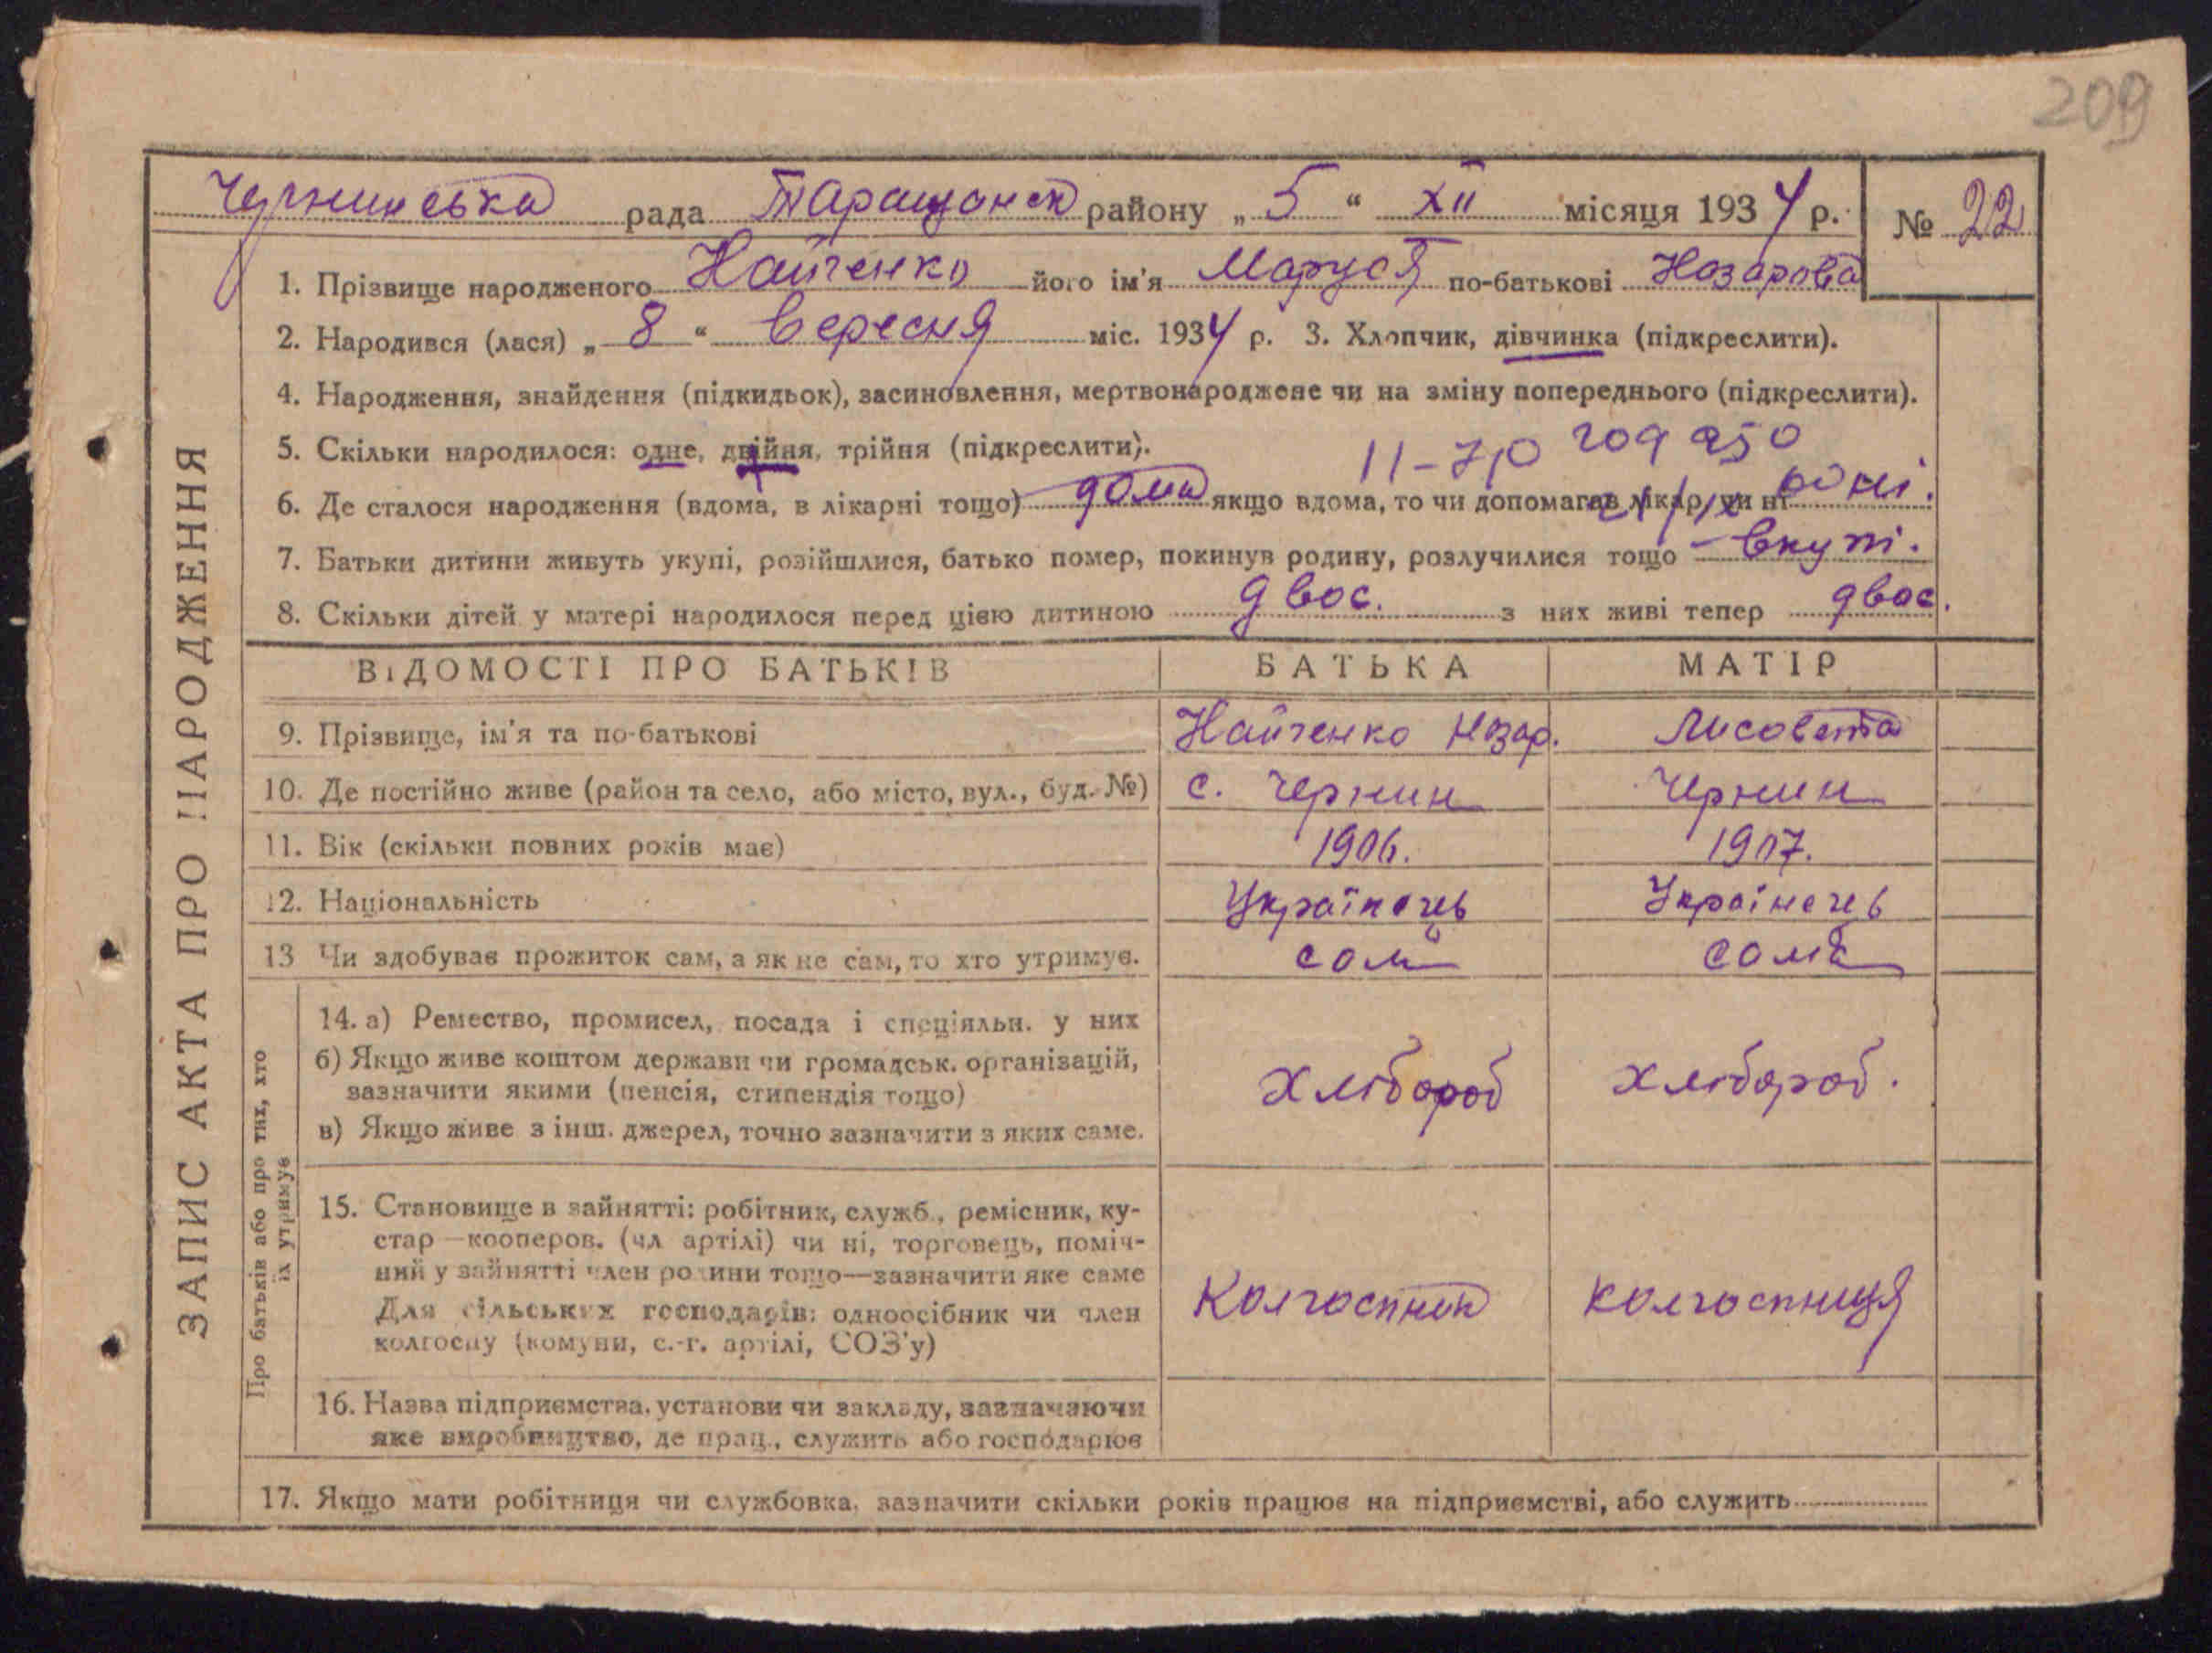 209
Чернинська рада Таращанск району „ 5 “ XII місяця 1934 р. № 22
ЗАПИС АКТА ПРО НАРОДЖЕННЯ
1. Прізвище народженого Найченко його ім'я Маруся по-батькові Назарова
2. Народився (лася) „ 8 “ вересня міс. 1934 р. 3. Хлопчик, дівчинка (підкреслити).
4. Народження, знайдення (підкидьок), засиновлення, мертвонароджене чи на зміну попереднього (підкреслити).
5. Скільки народилося: одне, двійня, трійня (підкреслити).
6. Де сталося народження (вдома, в лікарні тощо) дома якщо вдома, то чи допомагав лікар, чи ні ні.
7. Батьки дитини живуть укупі, розійшлися, батько помер, покинув родину, розлучилися тощо – вкупі.
8. Скільки дітей у матері народилося перед цією дитиною двоє. з них живі тепер двоє.
ВІДОМОСТІ ПРО БАТЬКІВ БАТЬКА МАТІР
9. Прізвище, ім'я та по-батькові Найченко Назар. Лисовета
10. Де постійно живе (район та село, або місто, вул., буд. №) с. Чернин Чернин
11. Вік (скільки повних років має) 1906. 1907.
12. Національність Українець Українець
13 Чи здобуває прожиток сам, а як не сам, то хто утримує. сам сама
Про батьків або про тих, хто
їх утримує
14. а) Ремество, промисел, посада і спеціяльн. у них
б) Якщо живе коштом держави чи громадськ. організацій,
зазначити якими (пенсія, стипендія тощо) хлібороб хлібороб.
в) Якщо живе з інш. джерел, точно зазначити з яких саме.
15. Становище в зайнятті: робітник, служб., ремісник, ку-
стар—кооперов. (чл артілі) чи ні, торговець, поміч-
ний у зайнятті член родини тощо—зазначити яке саме
Для сільських господарів: одноосібник чи член Колгоспник колгоспниця
колгоспу (комуни, с.-г. артілі, СОЗ'у)
16. Назва підприємства, установи чи закладу, зазначаючи
яке виробництво, де прац., служить або господарює
17. Якщо мати робітниця чи службовка, зазначити скільки років працює на підприємстві, або служить